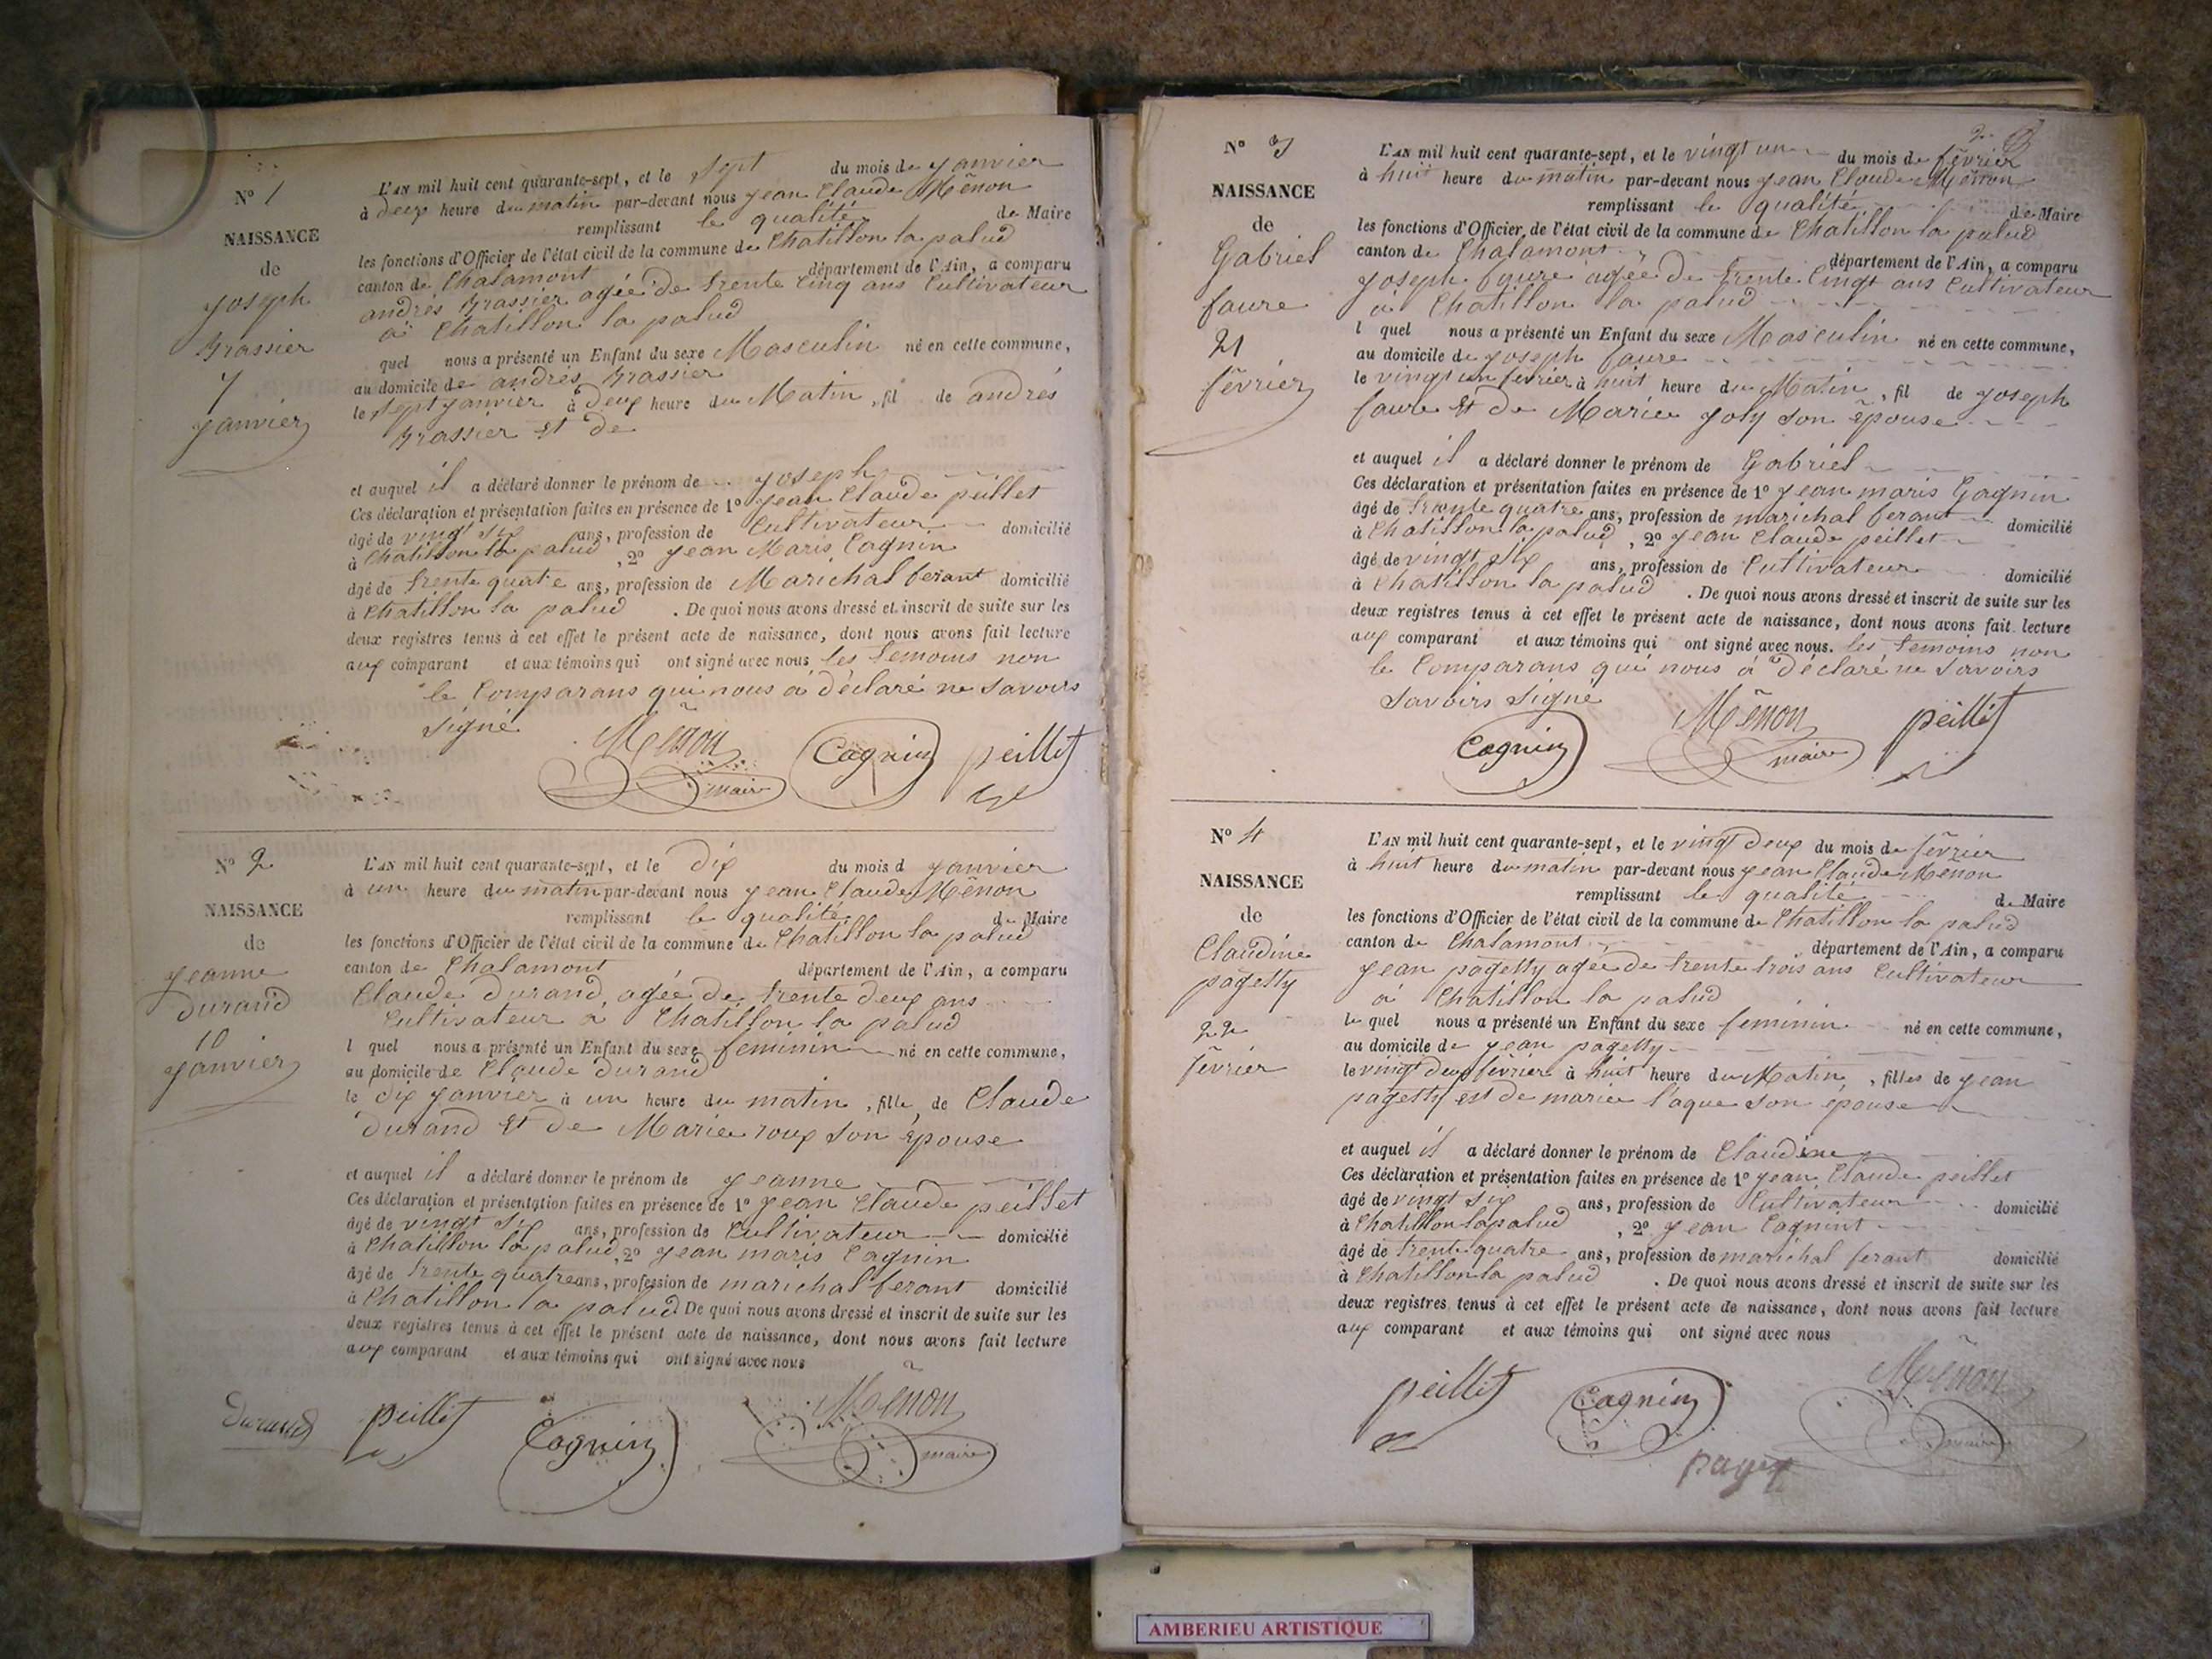 N° 1
NAISSANCE
de
Joseph
Brassier
7
Janvier
L'AN mil huit cent quarante-sept, et le sept du mois de Janvier
à deux heure du matin par-devant nous Jean Claude Mênon
remplissant la qualité de Maire
les fonctions d'Officier de l'état civil de la commune de Chatillon la palud
canton de Chalamont département de l'Ain, a comparu
andrés Brassier agée de trente Cinq ans Cultivateur
à Chatillon la palud
quel nous a présenté un Enfant du sexe Masculin né en cette commune,
au domicile de andrés Brassier
le sept janvier à deux heure du Matin, fil de andrés
Brassier et de
et auquel il a déclaré donner le prénom de Joseph
Ces déclaration et présentation faites en présence de 1° Jean Claude peillet
âgé de vingt six ans, profession de Cultivateur domicilié
à Chatillon la palud, 2° Jean Maris Cagnin
âgé de trente quatre ans, profession de Marichal ferant domicilié
à Chatillon la palud. De quoi nous avons dressé et inscrit de suite sur les
deux registres tenus à cet effet le présent acte de naissance, dont nous avons fait lecture
aux comparant et aux témoins qui ont signé avec nous les temoins non
le Comparans qui nous à déclaré ne savoirs
signé
Mênon maire Cagnin peillet
N° 2
NAISSANCE
de
Jeanne
Durand
10
Janvier
L'AN mil huit cent quarante-sept, et le dix du mois d Janvier
à un heure du matin par-devant nous Jean Claude Mênon
remplissant la qualité de Maire
les fonctions d'Officier de l'état civil de la commune de Chatillon la palud
canton de Chalamont département de l'Ain, a comparu
Claude Durand, agée de trente deux ans
Cultivateur a Chatillon la palud
l quel nous a présenté un Enfant du sexe feminin né en cette commune,
au domicile de Claude Durand
le dix Janvier à un heure du matin, fille de Claude
Durand et de Marie roux son épouse
et auquel il a déclaré donner le prénom de Jeanne
Ces déclaration et présentation faites en présence de 1° Jean Claude peillet
âgé de vingt six ans, profession de Cultivateur domicilié
à Chatillon la palud, 2° Jean maris Cagnin
âgé de trente quatre ans, profession de marichal ferant domicilié
à Chatillon la palud De quoi nous avons dressé et inscrit de suite sur les
deux registres tenus à cet effet le présent acte de naissance, dont nous avons fait lecture
aux comparant et aux témoins qui ont signé avec nous
Durand peillet Cagnin Mênon maire
N° 3
NAISSANCE
de
Gabriel
faure
21
fêvrier
L'AN mil huit cent quarante-sept, et le vingt un du mois de fêvrier
à huit heure du matin par-devant nous Jean Claude Mênon
remplissant la qualité de Maire
les fonctions d'Officier de l'état civil de la commune de Chatillon la palud
canton de Chalamont département de l'Ain, a comparu
Joseph faure agée de trente Cingt ans Cultivateur
à Chatillon la palud
l quel nous a présenté un Enfant du sexe Masculin né en cette commune,
au domicile de Joseph faure
le vingt un fevrier à huit heure du Matin, fil de Joseph
faure et de Marie Joly son épouse
et auquel il a déclaré donner le prénom de Gabriel
Ces déclaration et présentation faites en présence de 1° Jean maris Cagnin
âgé de trente quatre ans, profession de marichal ferant domicilié
à Chatillon la palud, 2° Jean Claude peillet
âgé de vingt six ans, profession de Cultivateur domicilié
à Chatillon la palud. De quoi nous avons dressé et inscrit de suite sur les
deux registres tenus à cet effet le présent acte de naissance, dont nous avons fait lecture
aux comparant et aux témoins qui ont signé avec nous. les temoins non
le Comparans qui nous à déclaré ne savoirs
savoirs signé
Cagnin Mênon maire peillet
N° 4
NAISSANCE
de
Claudine
pagetty
22
fêvrier
L'AN mil huit cent quarante-sept, et le vingt deux du mois de fêvrier
à huit heure du matin par-devant nous Jean Claude Mênon
remplissant la qualité de Maire
les fonctions d'Officier de l'état civil de la commune de Chatillon la palud
canton de Chalamont département de l'Ain, a comparu
Jean pagetty agée de trente trois ans Cultivateur
à Chatillon la palud
le quel nous a présenté un Enfant du sexe feminin né en cette commune,
au domicile de Jean pagetty
le vingt deux fêvrier à huit heure du Matin, filles de Jean
pagetty est de marie l'aque son epouse
et auquel il a déclaré donner le prénom de Claudine
Ces déclaration et présentation faites en présence de 1° Jean Claude peillet
âgé de vingt six ans, profession de Cultivateur domicilié
à Chatillon la palud, 2° Jean Cagnint
âgé de trente quatre ans, profession de maréchal ferant domicilié
à Chatillon la palud. De quoi nous avons dressé et inscrit de suite sur les
deux registres tenus à cet effet le présent acte de naissance, dont nous avons fait lecture
aux comparant et aux témoins qui ont signé avec nous
peillet Cagnin Mênon maire
AMBERIEU ARTISTIQUE